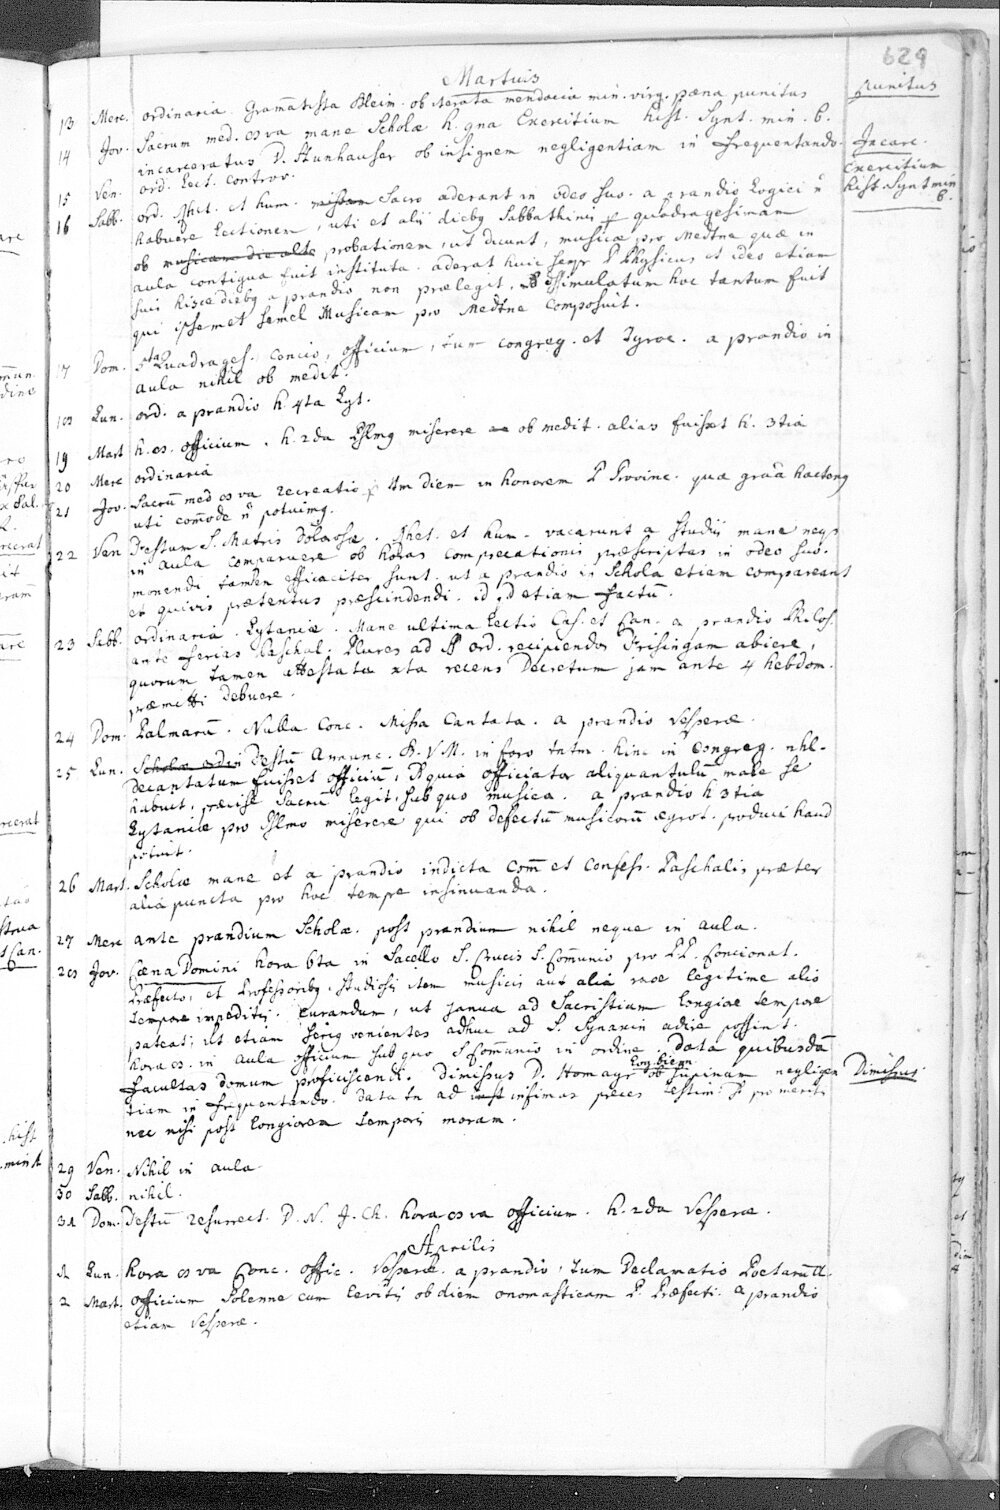 629
Martius
13 Merc. ordinaria Gramatista Bleim. ob iterata mendacia min. virg. pæna punitus
punitus
14 Jov. Sacrum med. 8va mane Scholæ h. 9na Exercitium hist. Synt. min. B.
incarceratus D. Stunhauser ob insignem negligentiam in frequentando.
Incarc.
15 Ven. ord. Lect. controv.
Exercitium
hist. Synt min
B.
16 Sabb. ord. Rhet. et hum. Sacro aderant in odeo suo. a prandio Logici
habuere Lectionem, uti et alij dieby Sabbathinis p quadragesimam
ob musicam die alte probationem, ut dicunt, musicæ pro Medtne quæ in
aula contigua fuit instituta. aderat huic semper P Physicus et ideo etiam
suis hisce dieby a prandio non prælegit. dissimulatum hoc tantum fuit
qui ipsemet semel Musicam pro Medtne composuit.
17 Dom. 5ta Quadrages. Concio, officium, tum congreg. et Tyroc. a prandio in
aula nihil ob medit.
18 Lun. ord. a prandio h 4ta Lyt.
19 Mart h. 8. officium. h. 2da Pslmg miserere ob medit. alias fuisset h. 3tia
20 Merc ordinaria
21 Jov. Sacrū med 8va recreatio p tm diem in honorem P Provinc. quæ grāā hacteng
uti com̄ode potuimg.
22 Ven Festum S. Matris Dolorosæ. Rhet. et hum. vacarunt a studijs mane neqȝ
in aula comparuere ob horas comprecationis præscriptas in odeo suo.
monendi tamen efficaciter sunt. ut a prandio in Schola etiam compareant
et quivis prætentus præscindendi. id etiam factū.
23 Sabb. ordinaria. Lytaniæ. Mane ultima Lectio Cas. et Can. a prandio Philos.
ante ferias Paschal. Plures ad ord. recipiendos Frisingam abiere,
quorum tamen attestata xta recens Decretum jam ante 4 hebdom.
præmitti debuere.
24 Dom. Palmarū. Nulla Conc. Missa Cantata. a prandio Vesperæ.
25 Lun. Scholæ ordin Festū Annunc. B. V. M. in foro tntm. hinc in congreg. nhl.
Decantatum fuisset officiū, quia officiator aliquantulū male se
habuit, præcise Sacrū legit, sub quo musica. a prandio h 3tia
Lytaniæ pro Pslmo miserere qui ob defectū musicorū ægrot. produci haud
potuit.
26 Mart. Scholæ mane et a prandio indicta Com̄ et Confess. Paschalis præter
alia puncta pro hoc tempe insinuanda.
27 Merc ante prandium Scholæ. post prandium nihil neque in aula.
28 Jov. Cæna Domini hora 6ta in Sacello S. Crucis S. Com̄unio pro PP. Concionat.
Præfecto, et Professoriby. Studiosis item musicis aut alia raõe legitime alio
tempore impeditis. Curandum, ut janua ad Sacristiam longiore tempore
pateat; ut etiam serig venientes adhuc ad S. Synaxin adire possint.
hora 8. in aula officium sub quo S. Com̄unio in ordine. data quibusdā
facultas domum proficiscendi. Dimissus D. Homayr ob supinam negligen
Dimissus.
tiam in frequentando. Data tn ad infimas preces testim. pro meritis
nec nisi post longiorem temporis moram.
29 Ven. Nihil in aula.
30 Sabb. nihil.
31 Dom. Festū resurrect. D. N. J. Ch. hora 8va officium. h. 2da Vesperæ.
Aprilis
1 Lun. hora 8va Conc. offic. Vesperæ a prandio, tum Declamatio Poetarū
2 Mart. officium Solenne cum Levitis ob diem onomasticam P. Præfecti. a prandio
etiam Vesperæ.